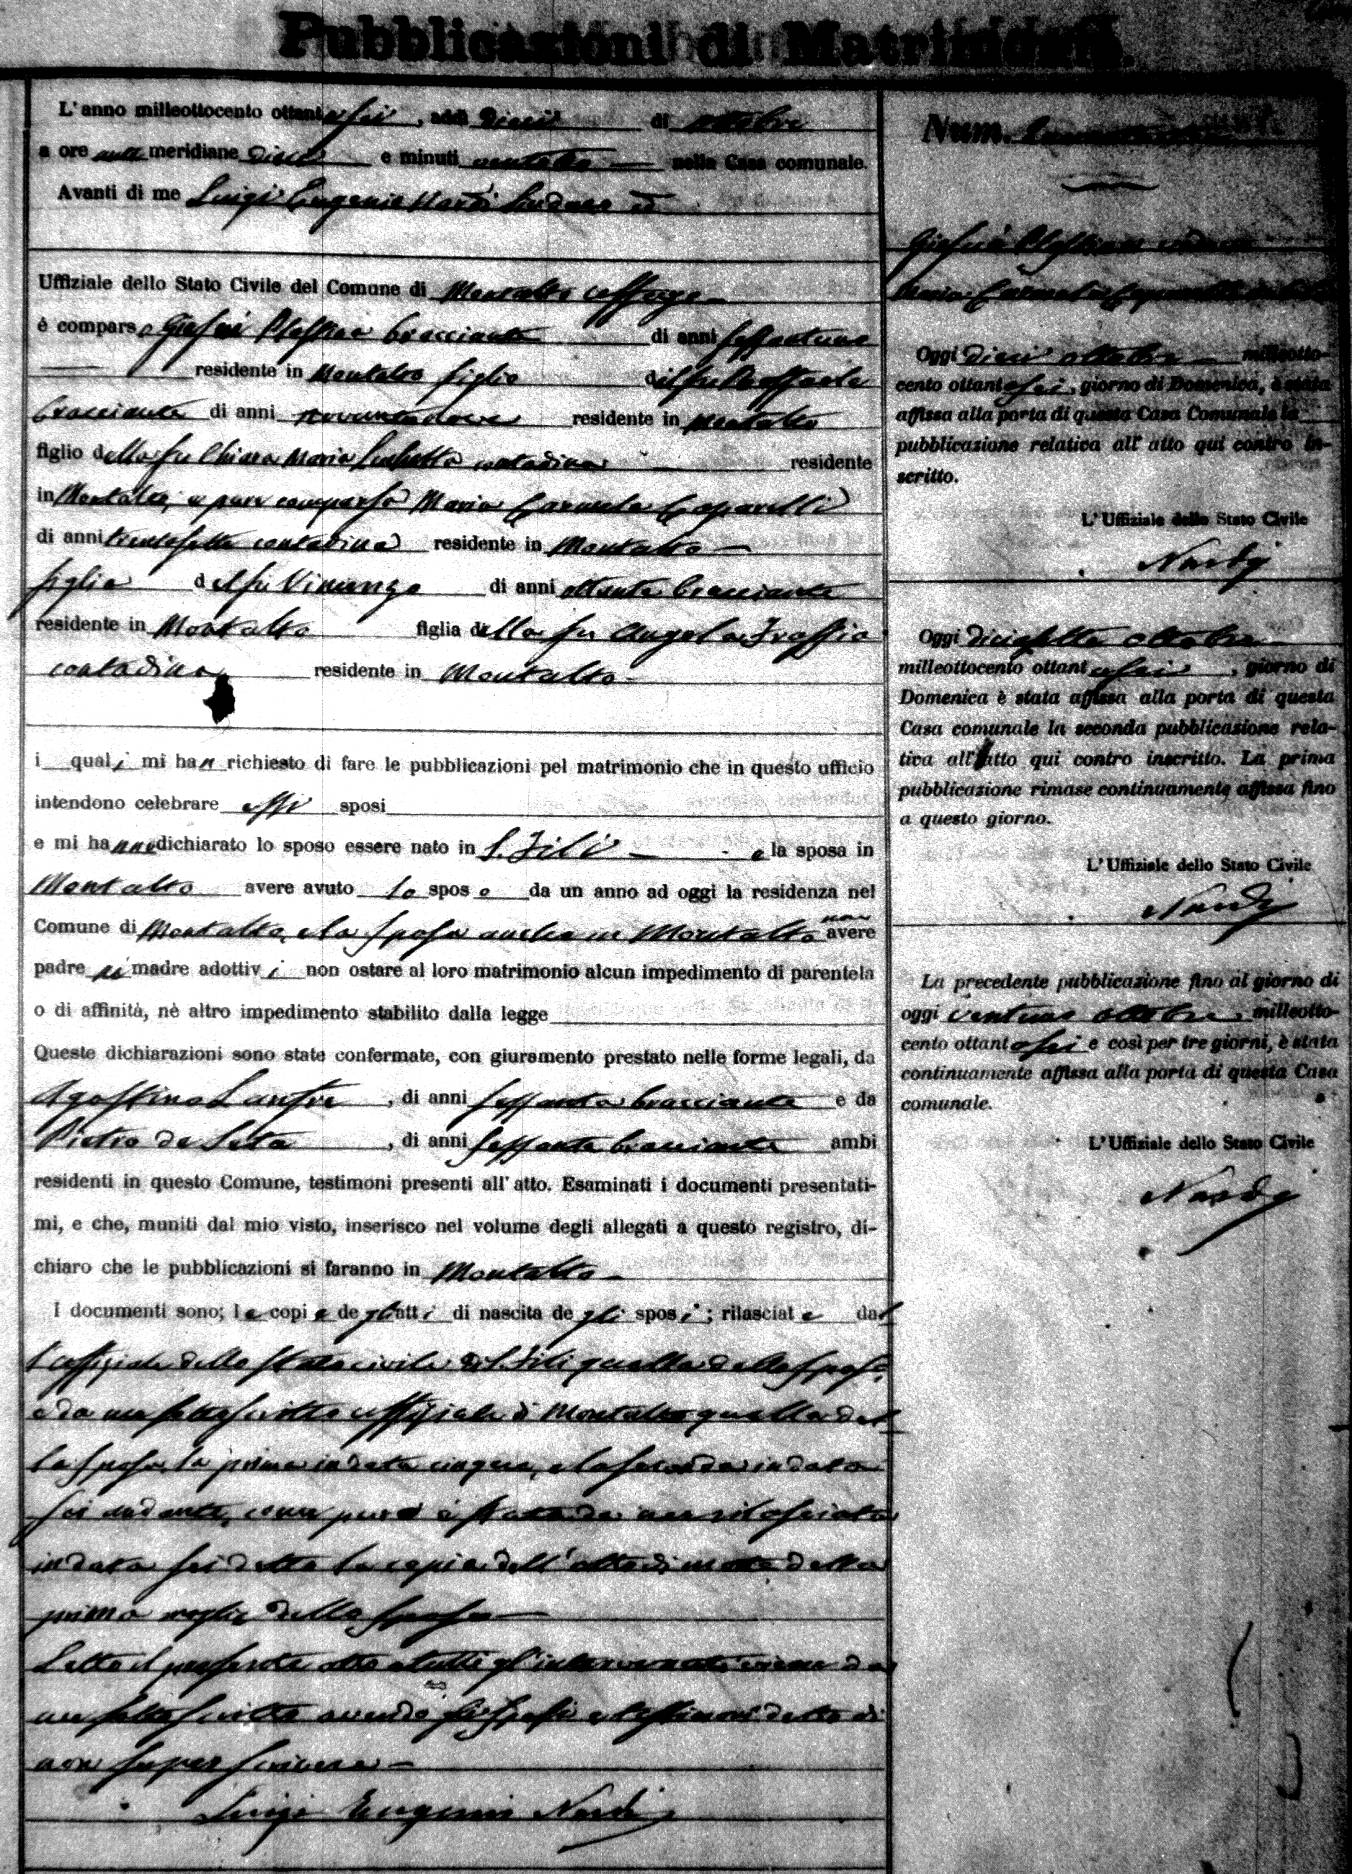 Pubblicazioni di Matrimonio.
L'anno milleottocento ottantasei, addì dieci di ottobre
a ore anti meridiane dieci e minuti nella Casa comunale.
Avanti di me Luigi Eugenio Nardi Sindaco ed
Uffiziale dello Stato Civile del Comune di Montalto Uffugo
è comparso Giosuè bracciante di anni sessantuno
residente in Montalto figlio del fu Raffaele
bracciante di anni residente in Montalto
figlio della fu Chiara Maria contadina residente
in Montalto, e pure comparsa Maria Carmela Caparelli
di anni trentasette contadina residente in Montalto
figlia del fu Vincenzo di anni ottanta bracciante
residente in Montalto figlia della fu Angela
contadina residente in Montalto
i quali mi han richiesto di fare le pubblicazioni pel matrimonio che in questo ufficio
intendono celebrare essi sposi
e mi hanno dichiarato lo sposo essere nato in S. Fili e la sposa in
Montalto avere avuto lo sposo da un anno ad oggi la residenza nel
Comune di Montalto, e la sposa anche in Montalto non avere
padre nè madre adottivi non ostare al loro matrimonio alcun impedimento di parentela
o di affinità, nè altro impedimento stabilito dalla legge
Queste dichiarazioni sono state confermate, con giuramento prestato nelle forme legali, da
Agostino , di anni sessanta bracciante e da
Pietro de Seta , di anni sessanta bracciante ambi
residenti in questo Comune, testimoni presenti all'atto. Esaminati i documenti presentati-
mi, e che, muniti dal mio visto, inserisco nel volume degli allegati a questo registro, di-
chiaro che le pubblicazioni si faranno in Montalto
I documenti sono; le copie degli atti di nascita degli sposi; rilasciate dal
l'uffiziale dello Stato civile di S. Fili quella dello sposo,
e da me sottoscritto uffiziale di Montalto quella del
la sposa, la prima in data cinque, e la seconda in data
sei andante, come pure è stata da me rilasciata
in data sei detto la copia dell'atto di morte della
prima moglie dello sposo
Letto il presente atto a tutti gl'intervenuti viene da
me sottoscritto avendo gli sposi e testimoni detto di
non saper scrivere
Luigi Eugenio Nardi
Num.
Giosuè
Maria Carmela Caparelli
Oggi dieci ottobre milleotto-
cento ottantasei, giorno di Domenica, è stata
affissa alla porta di questa Casa Comunale la
pubblicazione relativa all'atto qui contro in-
scritto.
L'Uffiziale dello Stato Civile
Nardi
Oggi diciassette ottobre
milleottocento ottantasei, giorno di
Domenica è stata affissa alla porta di questa
Casa comunale la seconda pubblicazione rela-
tiva all'atto qui contro inscritto. La prima
pubblicazione rimase continuamente affissa fino
a questo giorno.
L'Uffiziale dello Stato Civile
Nardi
La precedente pubblicazione fino al giorno di
oggi ventuno ottobre milleotto-
cento ottantasei e così per tre giorni, è stata
continuamente affissa alla porta di questa Casa
comunale.
L'Uffiziale dello Stato Civile
Nardi